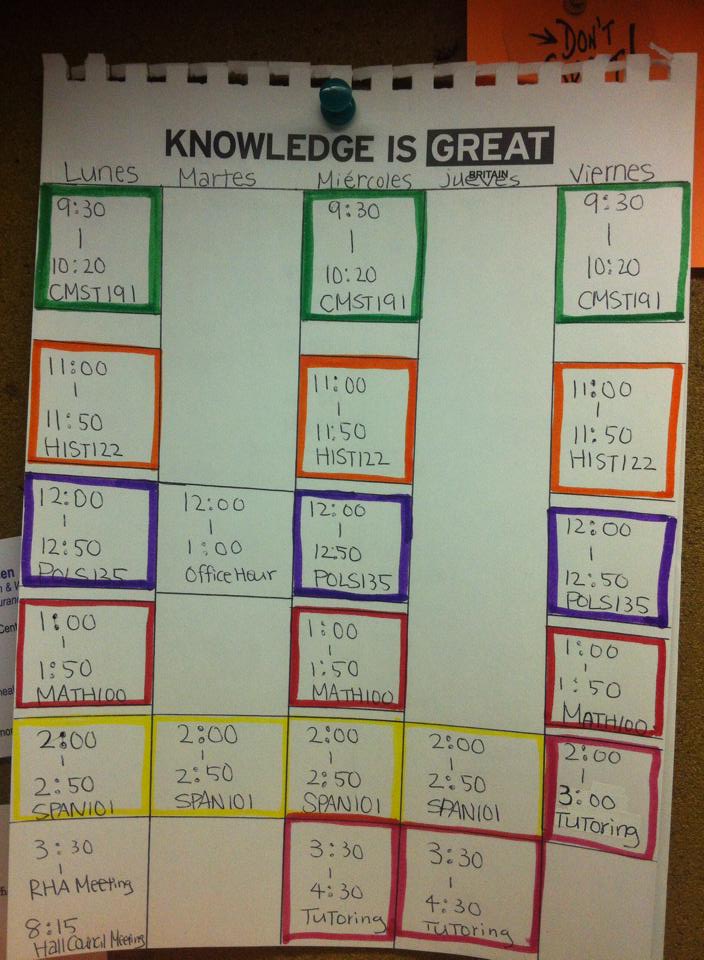 DON'T
KNOWLEDGE IS GREAT
BRITAIN
Lunes
Martes
Miércoles
Jueves
Viernes
9:30
|
10:20
CMST191
9:30
|
10:20
CMST191
9:30
|
10:20
CMST191
11:00
|
11:50
HIST122
11:00
|
11:50
HIST122
11:00
|
11:50
HIST122
12:00
|
12:50
POLS135
12:00
|
1:00
Office Hour
12:00
|
12:50
POLS135
12:00
|
12:50
POLS135
1:00
|
1:50
MATH100
1:00
|
1:50
MATH100
1:00
|
1:50
MATH100
2:00
|
2:50
SPAN101
2:00
|
2:50
SPAN101
2:00
|
2:50
SPAN101
2:00
|
2:50
SPAN101
2:00
|
3:00
TuToring
3:30
|
RHA Meeting
8:15
Hall Council Meeting
3:30
|
4:30
TuToring
3:30
|
4:30
TuToring